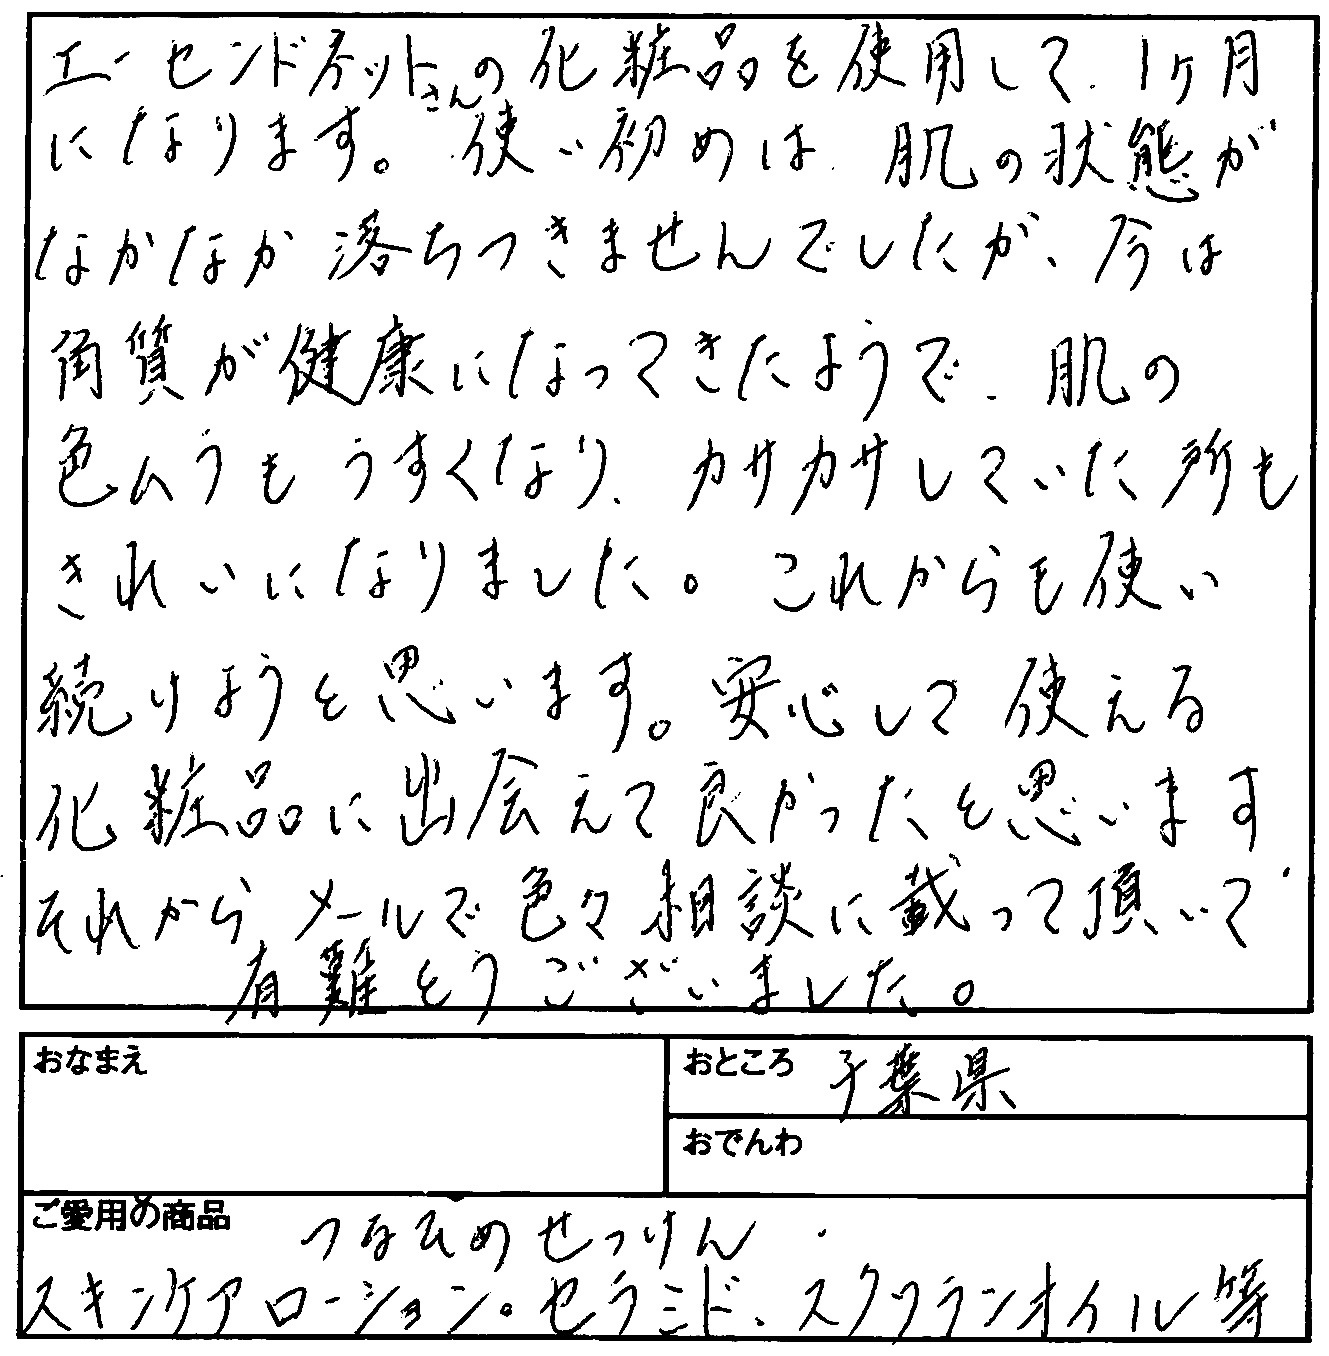 エーセンドネットさんの化粧品を使用して、1ヶ月
になります。使い初めは、肌の状態が
なかなか落ちつきませんでしたが、今は
角質が健康になってきたようで、肌の
色ムラもうすくなり、カサカサしていた所も
きれいになりました。これからも使い
続けようと思います。安心して使える
化粧品に出会えて良かったと思います
それからメールで色々相談に載って頂いて
有難とうございました。
おなまえ
おところ 千葉県
おでんわ
ご愛用の商品 つるひめせっけん
スキンケアローション。セラミド、スクワランオイル等